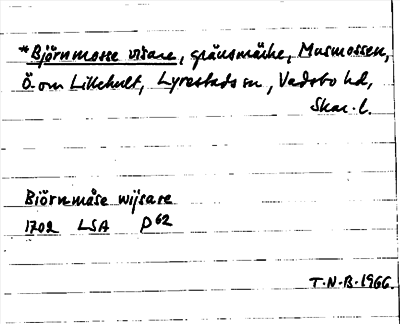 *Björnmosse visare, gränsmärke, Musmossen,
Ö. om Lillehult, Lyrestads sn, Vadsbo hd,
Skar. l.
Biörnemåse wijsare
1702 LSA P 62
T.N.B. 1966.